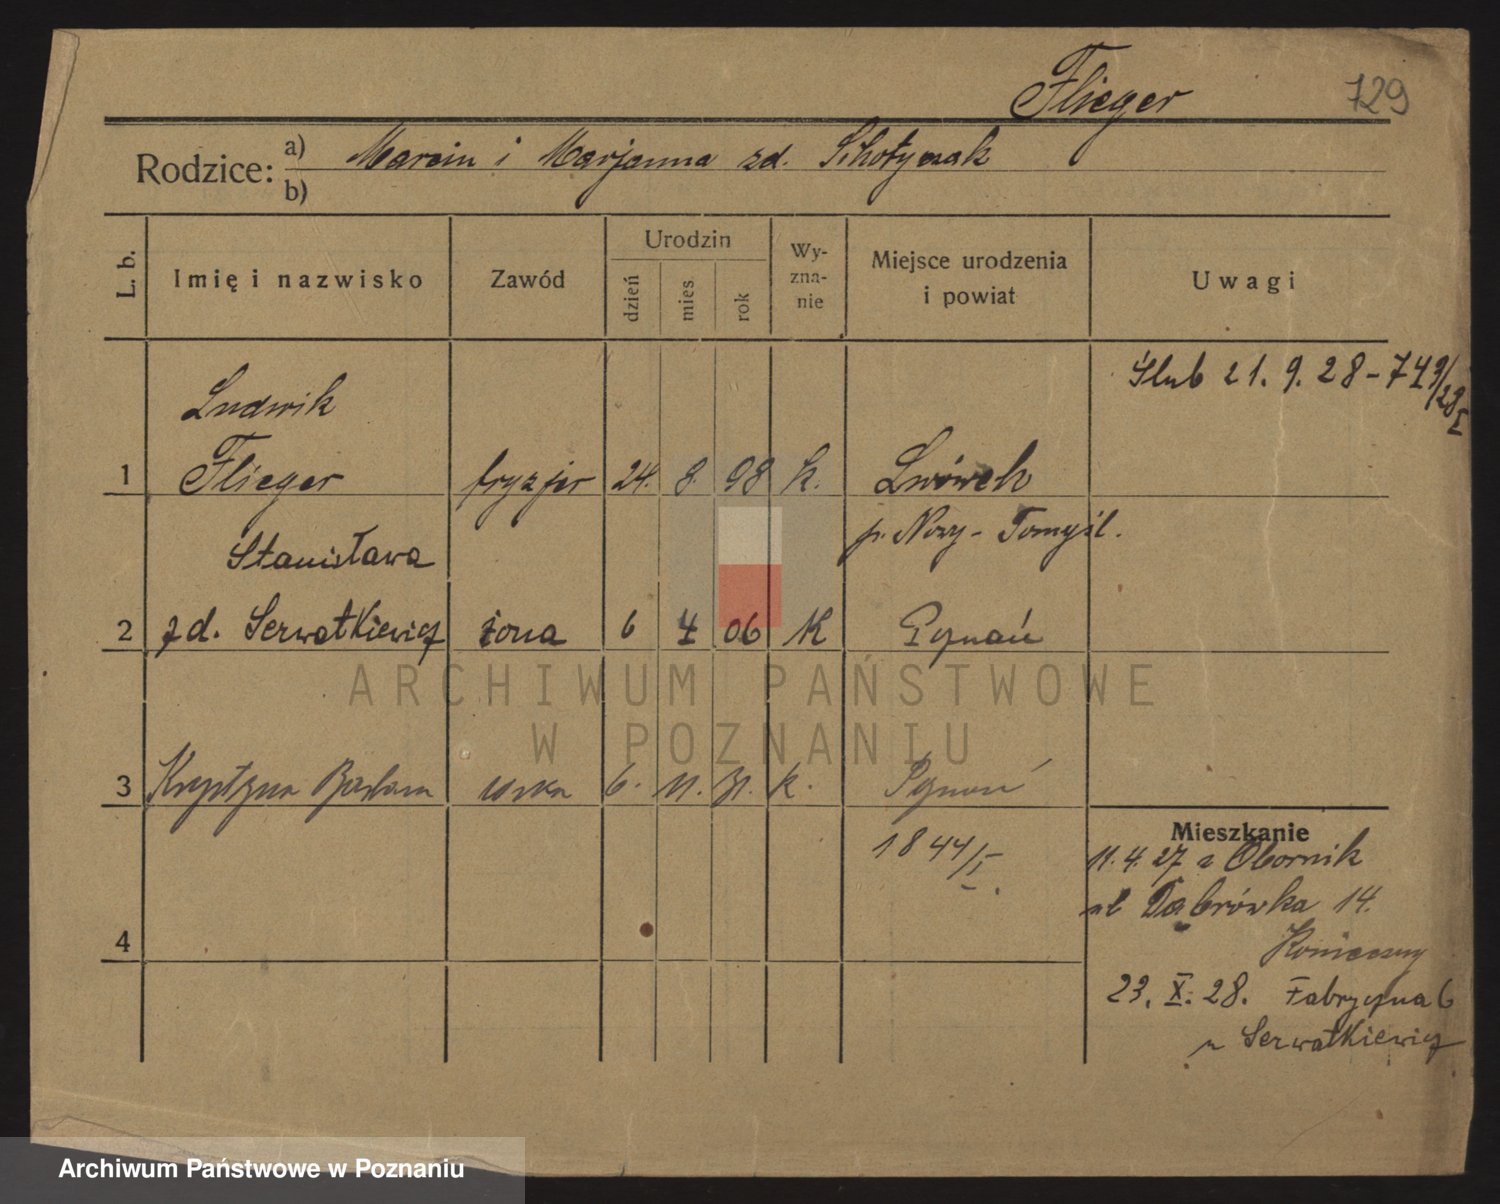 Flieger
729
Rodzice: a) Marcin i Marjanna zd.
b)
L. b. Imię i nazwisko Zawód Urodzin dzień mies rok Wyznanie Miejsce urodzenia i powiat Uwagi
Ślub 21. 9. 28 - 749/28 I
Ludwik
1 Flieger fryzjer 24. 8. 98 k. Lwówek
p. Nowy-Tomyśl.
Stanisława
2 zd. Serwatkiewicz żona 6 4 06 K Poznań
3 Krystyna Barbara córka 6. 11. 31. k. Poznań
1844/I.
4
Mieszkanie
11. 4. 27 z Obornik
ul Dąbrówka 14.
Konieczny
23. X. 28. Fabryczna 6
u Serwatkiewicz
ARCHIWUM PAŃSTWOWE
W POZNANIU
Archiwum Państwowe w Poznaniu